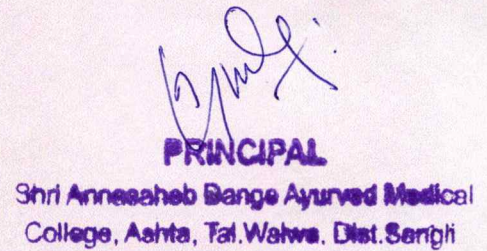 PRINCIPAL
Shri Annasaheb Dange Ayurved Medical
College, Ashta, Tal.Walwa, Dist.Sangli